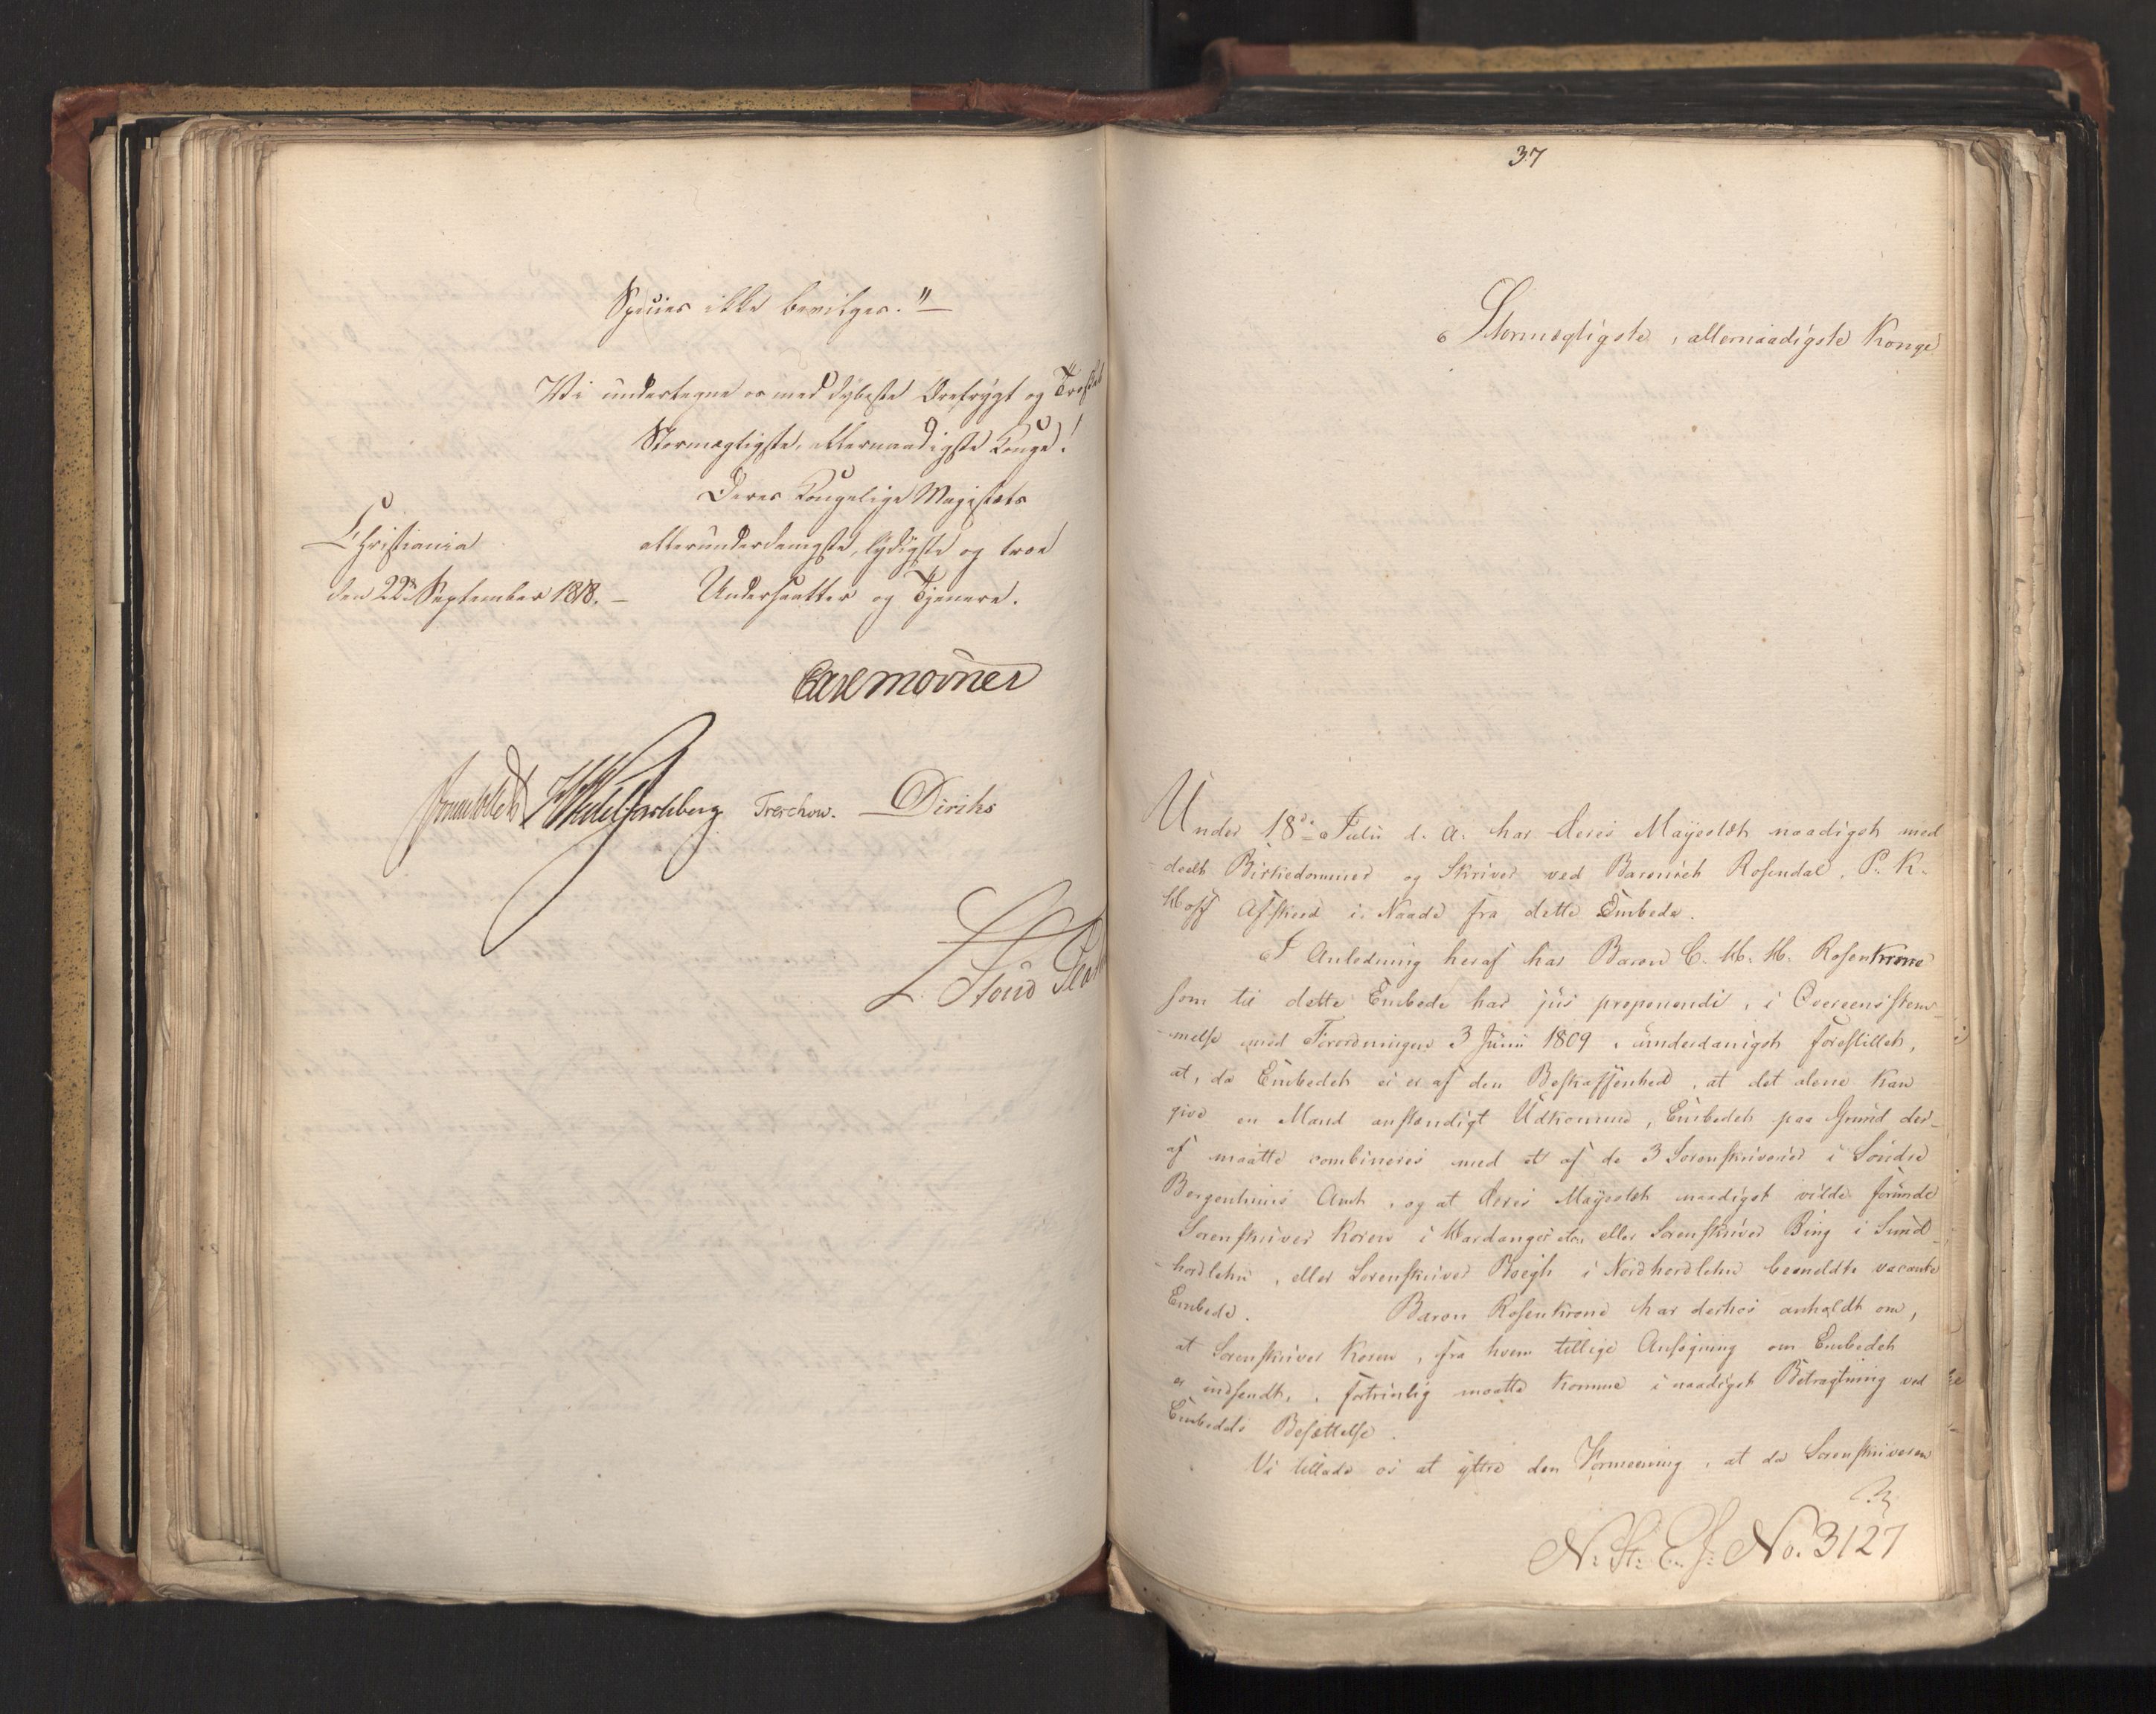 Species ikke bevilges."—
Vi undertegne os med dybeste Ærefrygt og Troskab
Stormægtigste, allernaadigste Konge!
Deres Kongelige Majestæts
Christiania
allerunderdanigste, lydigste og troe
den 22de September 1818. —
Undersaatter og Tjenere.
Carl Mörner
Sommerhielm HWedel Jarlsberg Treschow. Diriks
L. Stoud Plat
37
Stormægtigste, allernaadigste Konge
Under 18de Julii d. A. har Deres Mayestæt naadigst med
deelt Birkedommer og Skriver ved Baroniet Rosendal, P. K.
Hoff Afskeed i Naade fra dette Embede.
I Anledning heraf har Baron C. M. M. Rosenkrone
som til dette Embede har jus proponendi, i Overeensstem-
-melse med Forordningen 3 Junii 1809, underdanigst forestillet,
at, da Embedet ei er af den Beskaffenhed, at det alene kan
give en Mand anstændigt Udkomme, Embedet paa Grund der-
af maatte combineres med et af de 3 Sorenskriverier i Söndre
Bergenhuus Amt, og at Deres Mayestæt naadigst vilde forunde
Sorenskriver Koren i Hardanger etc. eller Sorenskriver Bing i Sund-
-hordlehn, eller Sorenskriver Böegh i Nordhordlehn bemeldte vacante
Embede. Baron Rosenkrone har derhos anholdt om,
at Sorenskriver Koren, fra hvem tillige Ansögning om Embedet
er indsendt, fortrinlig maatte komme i naadigst Betragtning ved
Embedets Besættelse.
Vi tillade os at yttre den Formeening, at da Sorenskriveren
N. St. C. J. No. 3127